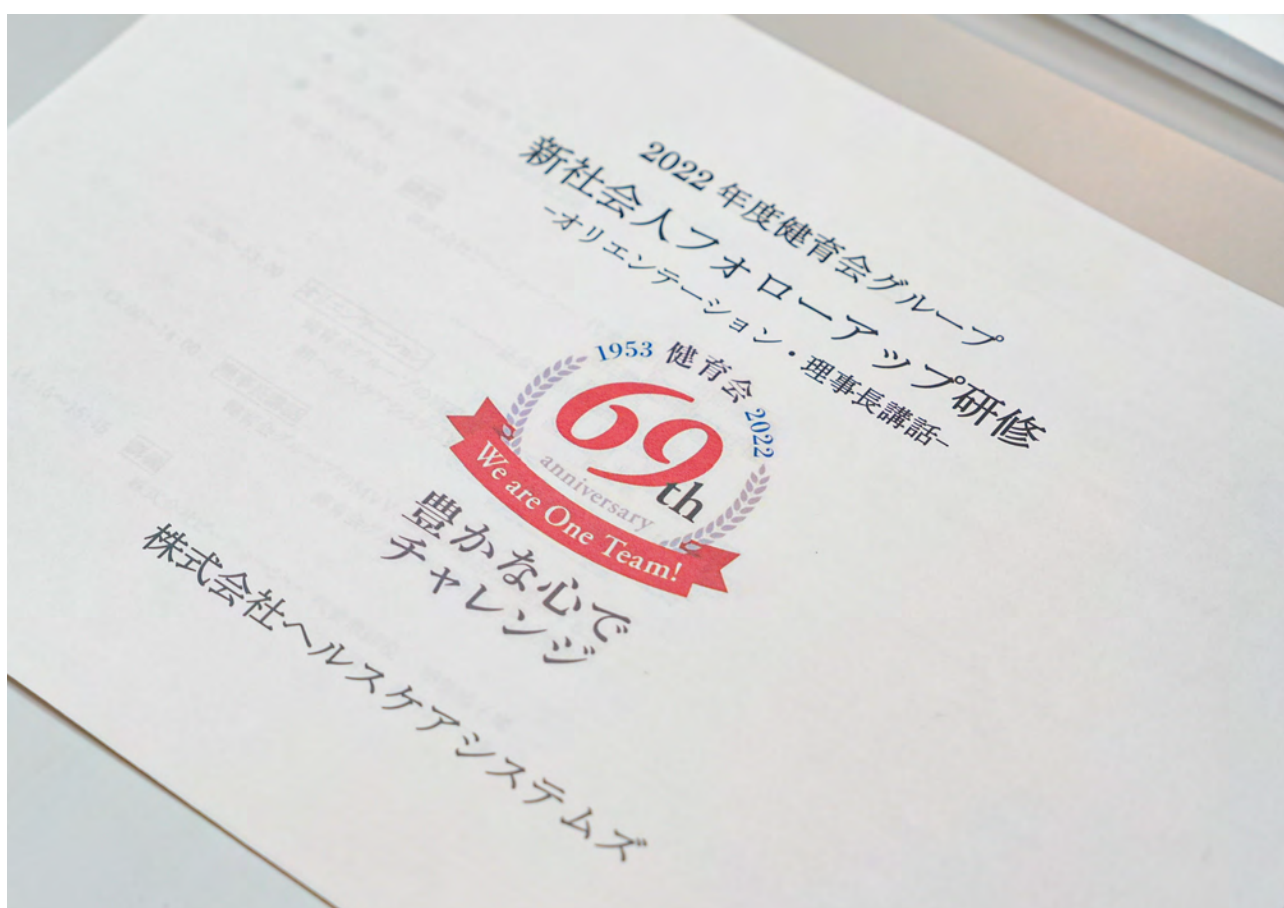 2022 年度健育会グループ
新社会人フォローアップ研修
-オリエンテーション・理事長講話-
1953 健育会 2022
69th
anniversary
We are One Team!
豊かな心で
チャレンジ
株式会社ヘルスケアシステムズ